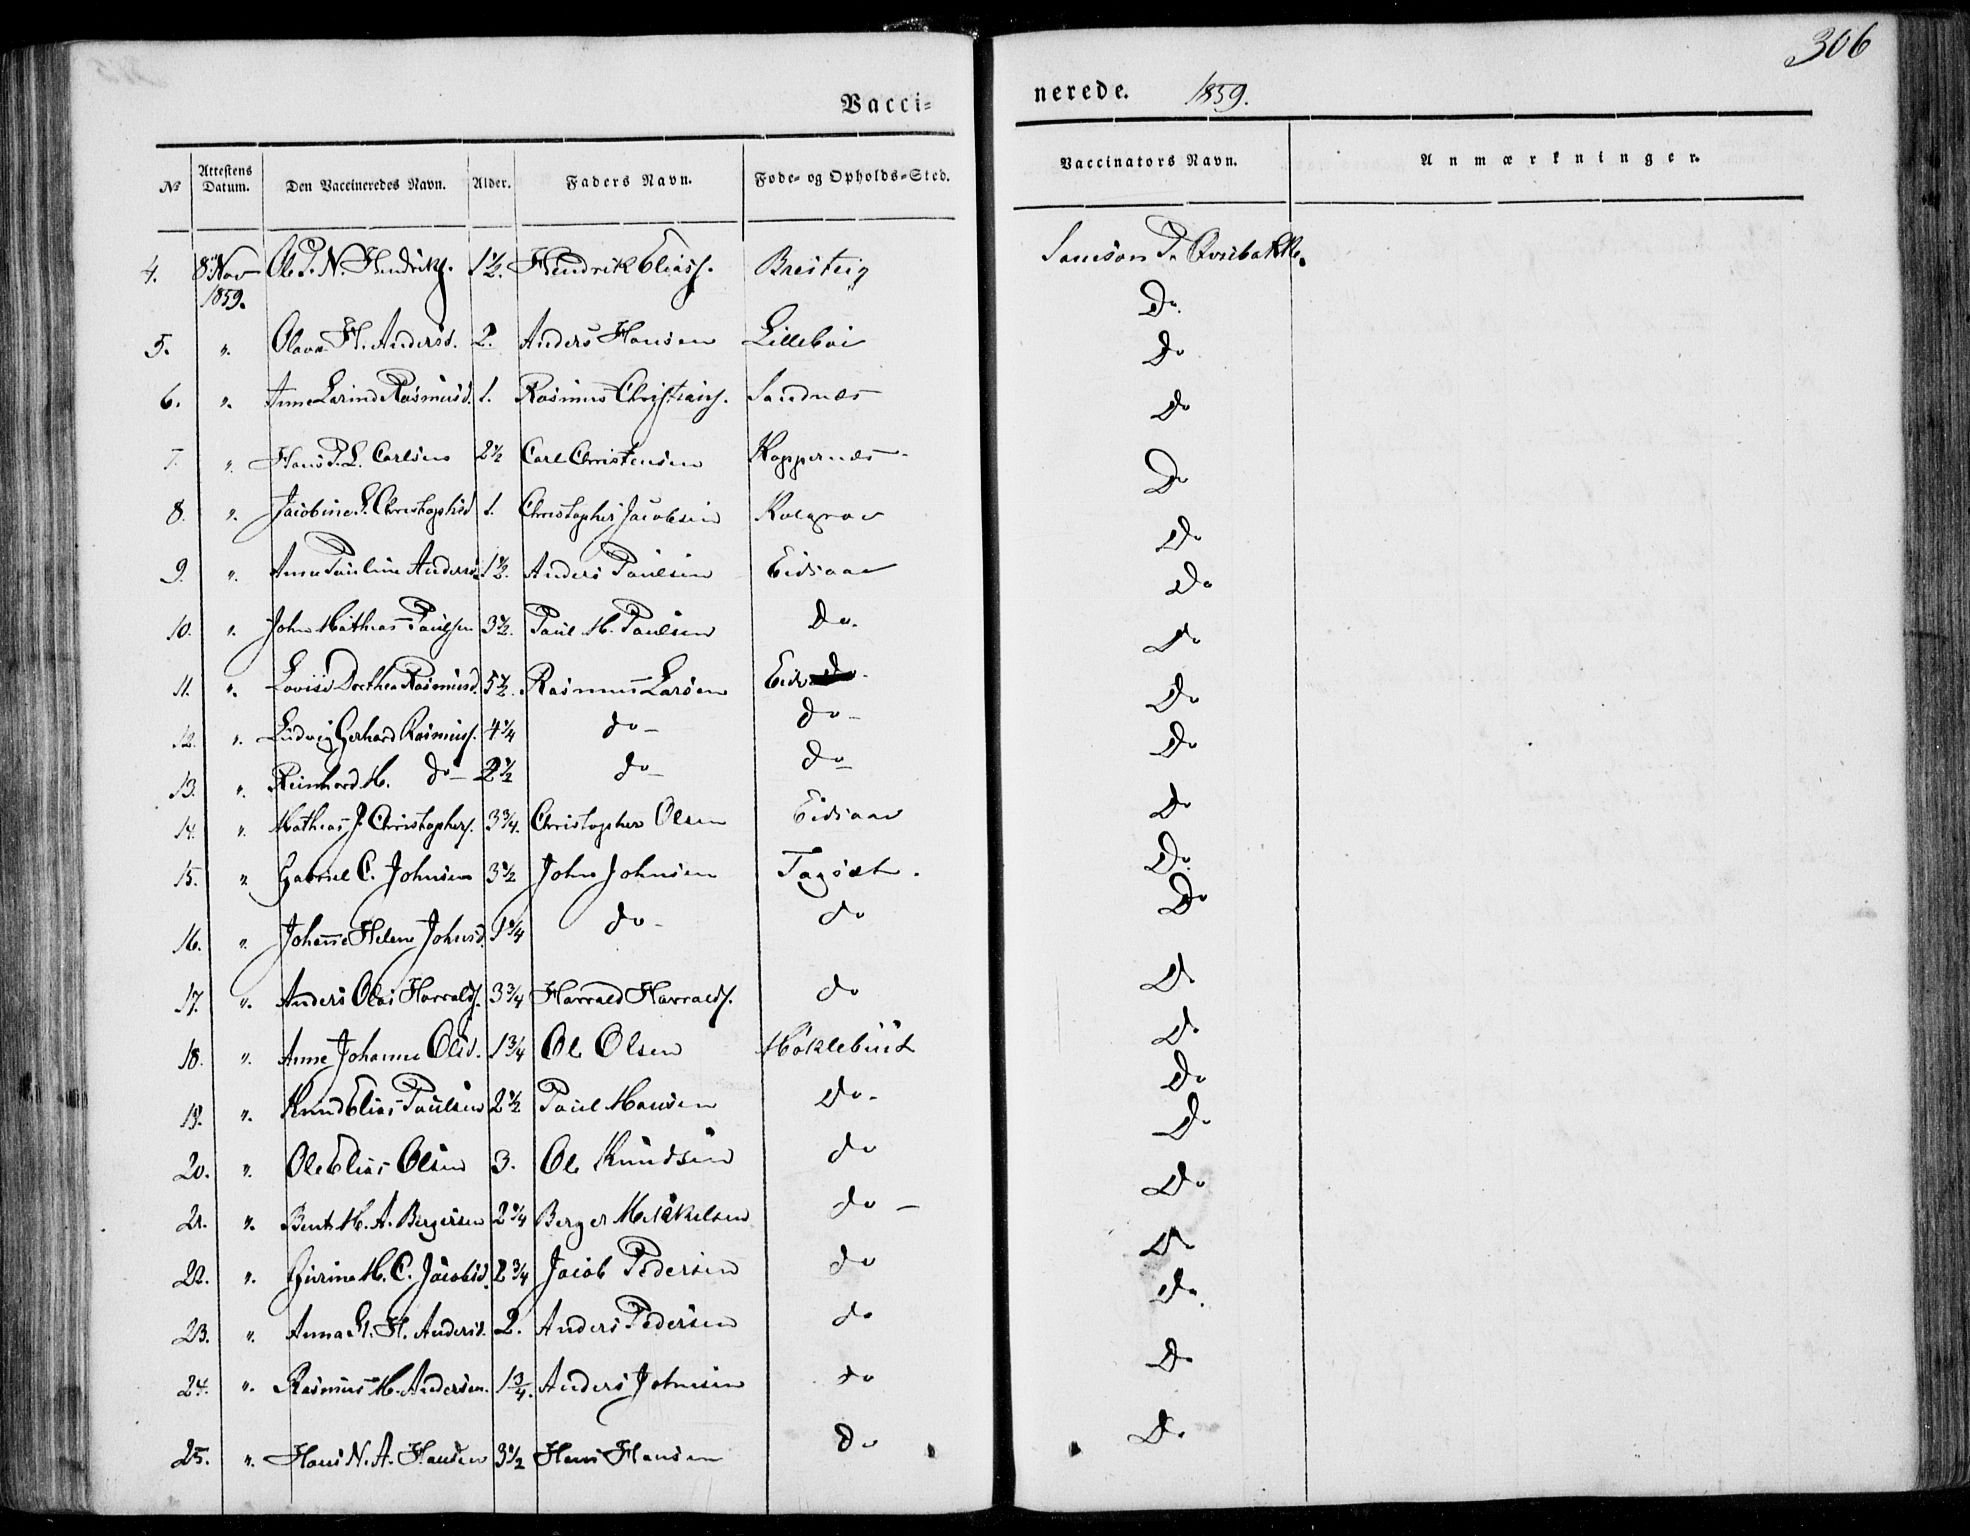 306
Vacci-nerede. 1859.
No Attestens Datum. Den Vaccineredes Navn. Alder. Faders Navn. Føde- og Opholds-Sted. Vaccinators Navn. Anmærkninger.
4. 8 Nov 1859. Ole P. N. Hendriks. 1½. Hendrik Eliass. Breiteig Samson P. Do.
5. " H. Andersd. 2. Anders Hansen Lillebøe Do
6. " Anne Larine Rasmusd. 1. Rasmus Christians. Sandnæs Do
7. " Hans P. L. Carlsen 2½ Carl Christensen Koppernæs Do
8. " Jacobine Christophsd 1. Christopher Jacobsen Do
9. " Anne Pauline Andersd 1½. Anders Paulsen Eidsaae Do
10. " John Mathias Paulsen 3½. Paul M. Paulsen Do. Do
11. " Lovise Dorthea Rasmusd. 5½. Rasmus Larsen Do
12. " Ludvig Gerhard Rasmuss. 4¼ do- do- Do
13. " Reinhard M. do- 2½ do- do- Do
14. " Mathias J. Christophers. 3¾. Christopher Olsen Eidsaae Do
15. " Gabriel C. Johnsen 3½ John Johnsen Tagsæt. Do
16. " Johanne Helene Johnsd. 1¼ do- do Do
17. " Anders Olai Harralds. 3¾ Harrald Harralds. do Do
18. " Anne Johanne Olsd. 1¾ Ole Olsen Møklebust Do
19. " Knud Elias Paulsen 2½ Paul Hansen Do- Do
20. " Ole Elias Olsen 3. Ole Knudsen do Do
21. " Bent M. A. Bergersen 2¼ Berger Mikkelsen do- Do
22. " M. C. Jacobsd. 2¾ Jacob Pedersen do Do
23. " Anna H. Andersd. 2. Anders Pedersen do Do
24. " Rasmus M. Andersen. 1¾. Anders Johnsen do Do
25. " Hans N. A. Hansen 3½ Hans Hansen Do Do